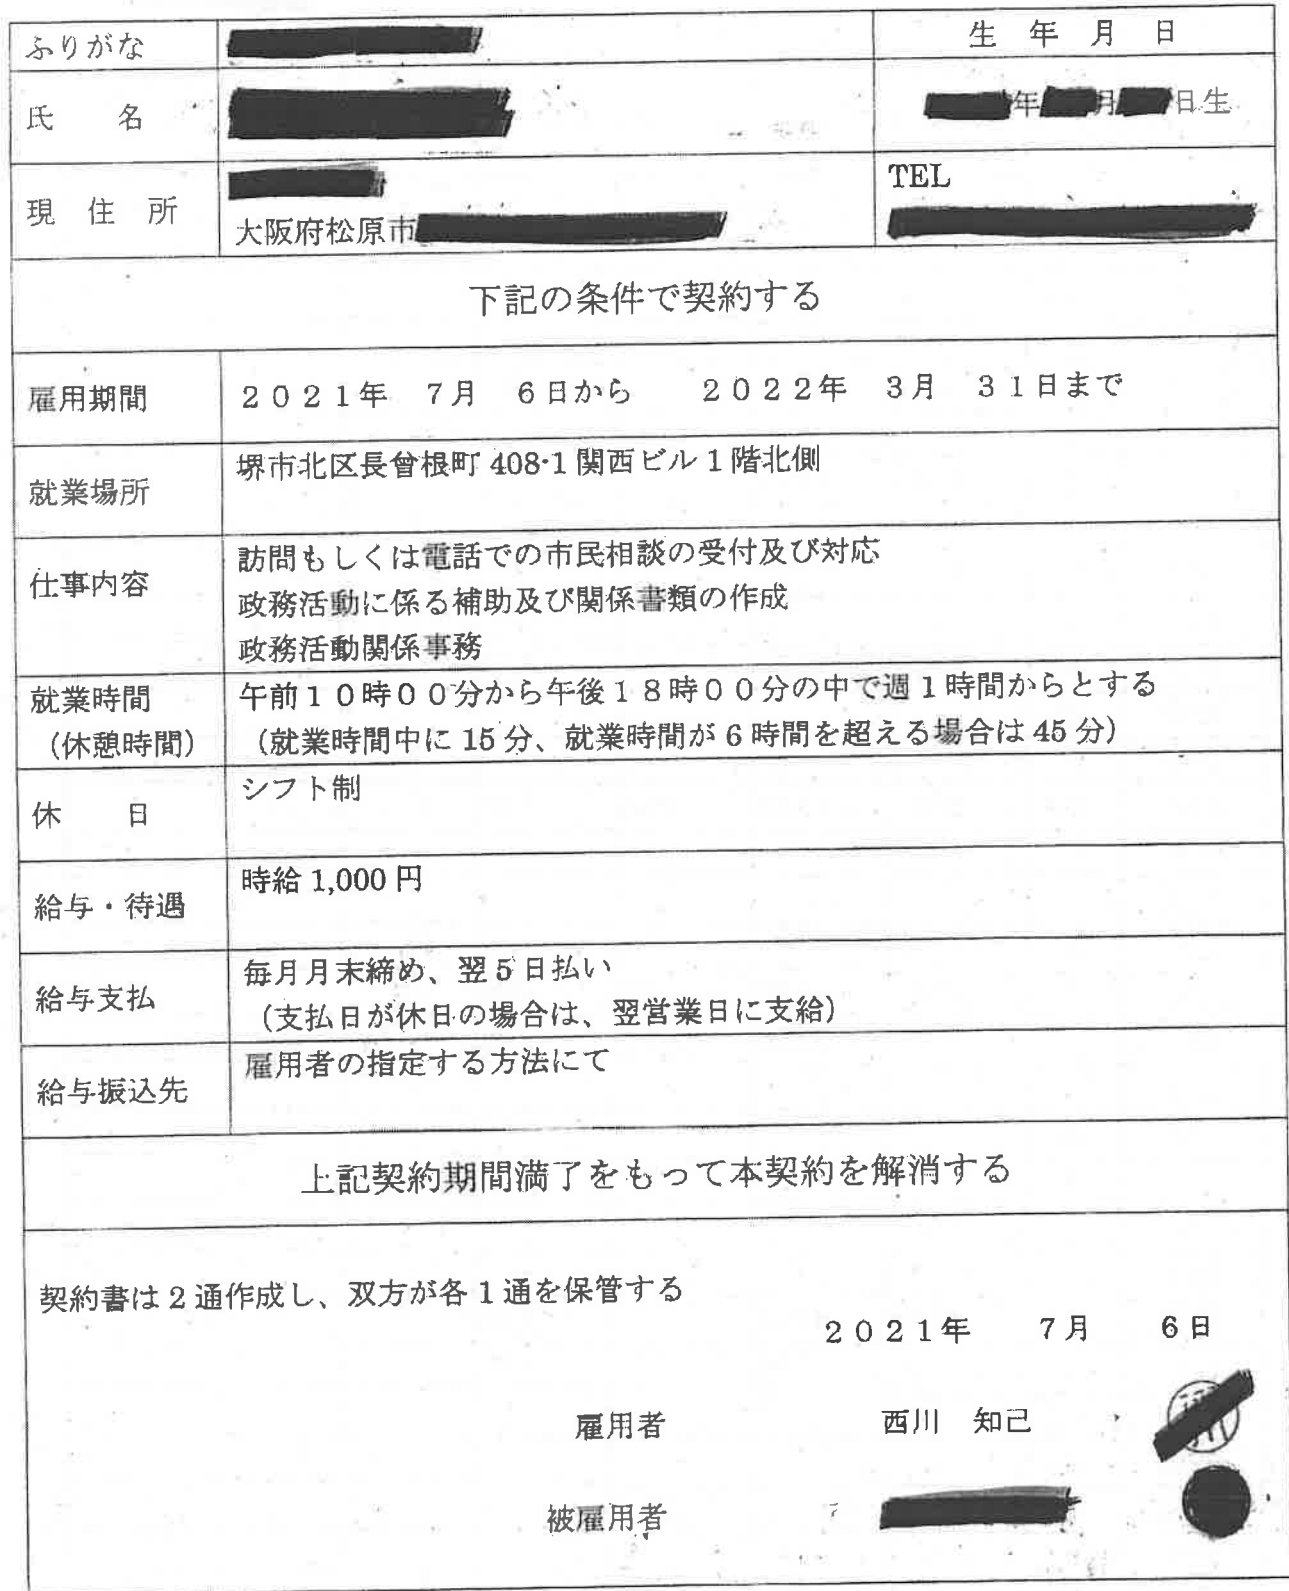 ふりがな
生 年 月 日
氏 名
年 月 日生
現 住 所
大阪府松原市
TEL
下記の条件で契約する
雇用期間
２０２１年 ７月 ６日から ２０２２年 ３月 ３１日まで
就業場所
堺市北区長曾根町 408-1 関西ビル 1 階北側
仕事内容
訪問もしくは電話での市民相談の受付及び対応
政務活動に係る補助及び関係書類の作成
政務活動関係事務
就業時間
（休憩時間）
午前１０時００分から午後１８時００分の中で週１時間からとする
（就業時間中に 15 分、就業時間が 6 時間を超える場合は 45 分）
休 日
シフト制
給与・待遇
時給 1,000 円
給与支払
毎月月末締め、翌 5 日払い
（支払日が休日の場合は、翌営業日に支給）
給与振込先
雇用者の指定する方法にて
上記契約期間満了をもって本契約を解消する
契約書は 2 通作成し、双方が各 1 通を保管する
２０２１年 ７月 ６日
雇用者 西川 知己
被雇用者